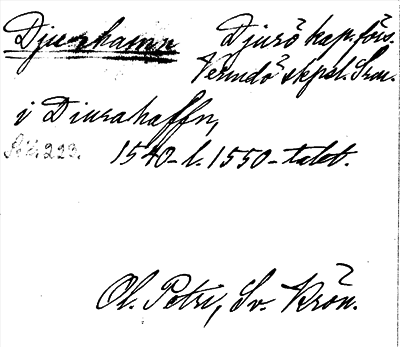 Djurhamn Djurö kap.förs.
Vermdö skpsl. Srm.
i Diurahaffn,
Sid. 223. 1540- l. 1550-talet.
Ol. Petri, Sv. Krön.